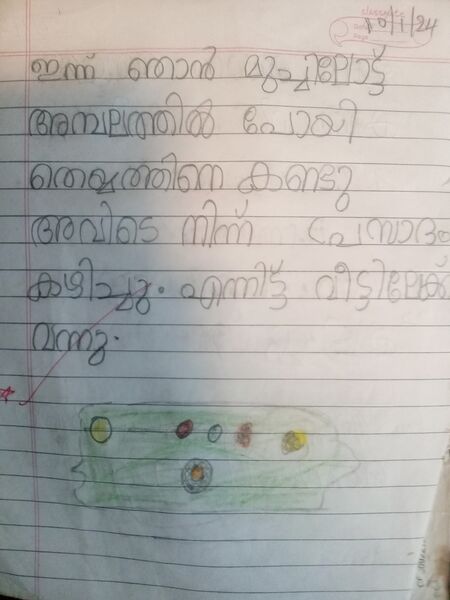 10/1/24
ഇന്ന് ഞാൻ മുച്ചിലോട്ട്
അമ്പലത്തിൽ പോയി
തെയ്യത്തിനെ കണ്ടു
അവിടെ നിന്ന് പ്രസാദം
കഴിച്ചു. എന്നിട്ട് വീട്ടിലേക്ക്
വന്നു.